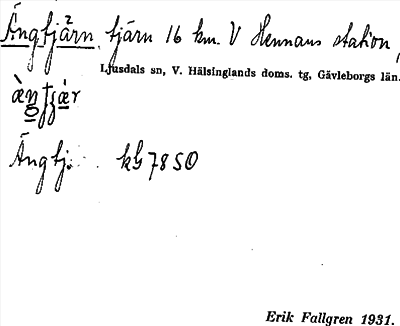 Ängtjärn, tjärn 16 km. V Hennans station,
Ljusdals sn, V. Hälsinglands doms. tg, Gävleborgs län.
Ängtj. kb 78 SO
Erik Fallgren 1931.